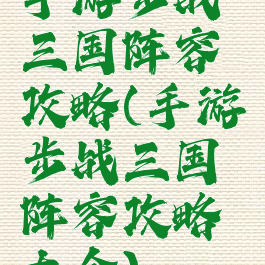 手游步战
三国阵容
攻略(手游
步战三国
阵容攻略
大全)